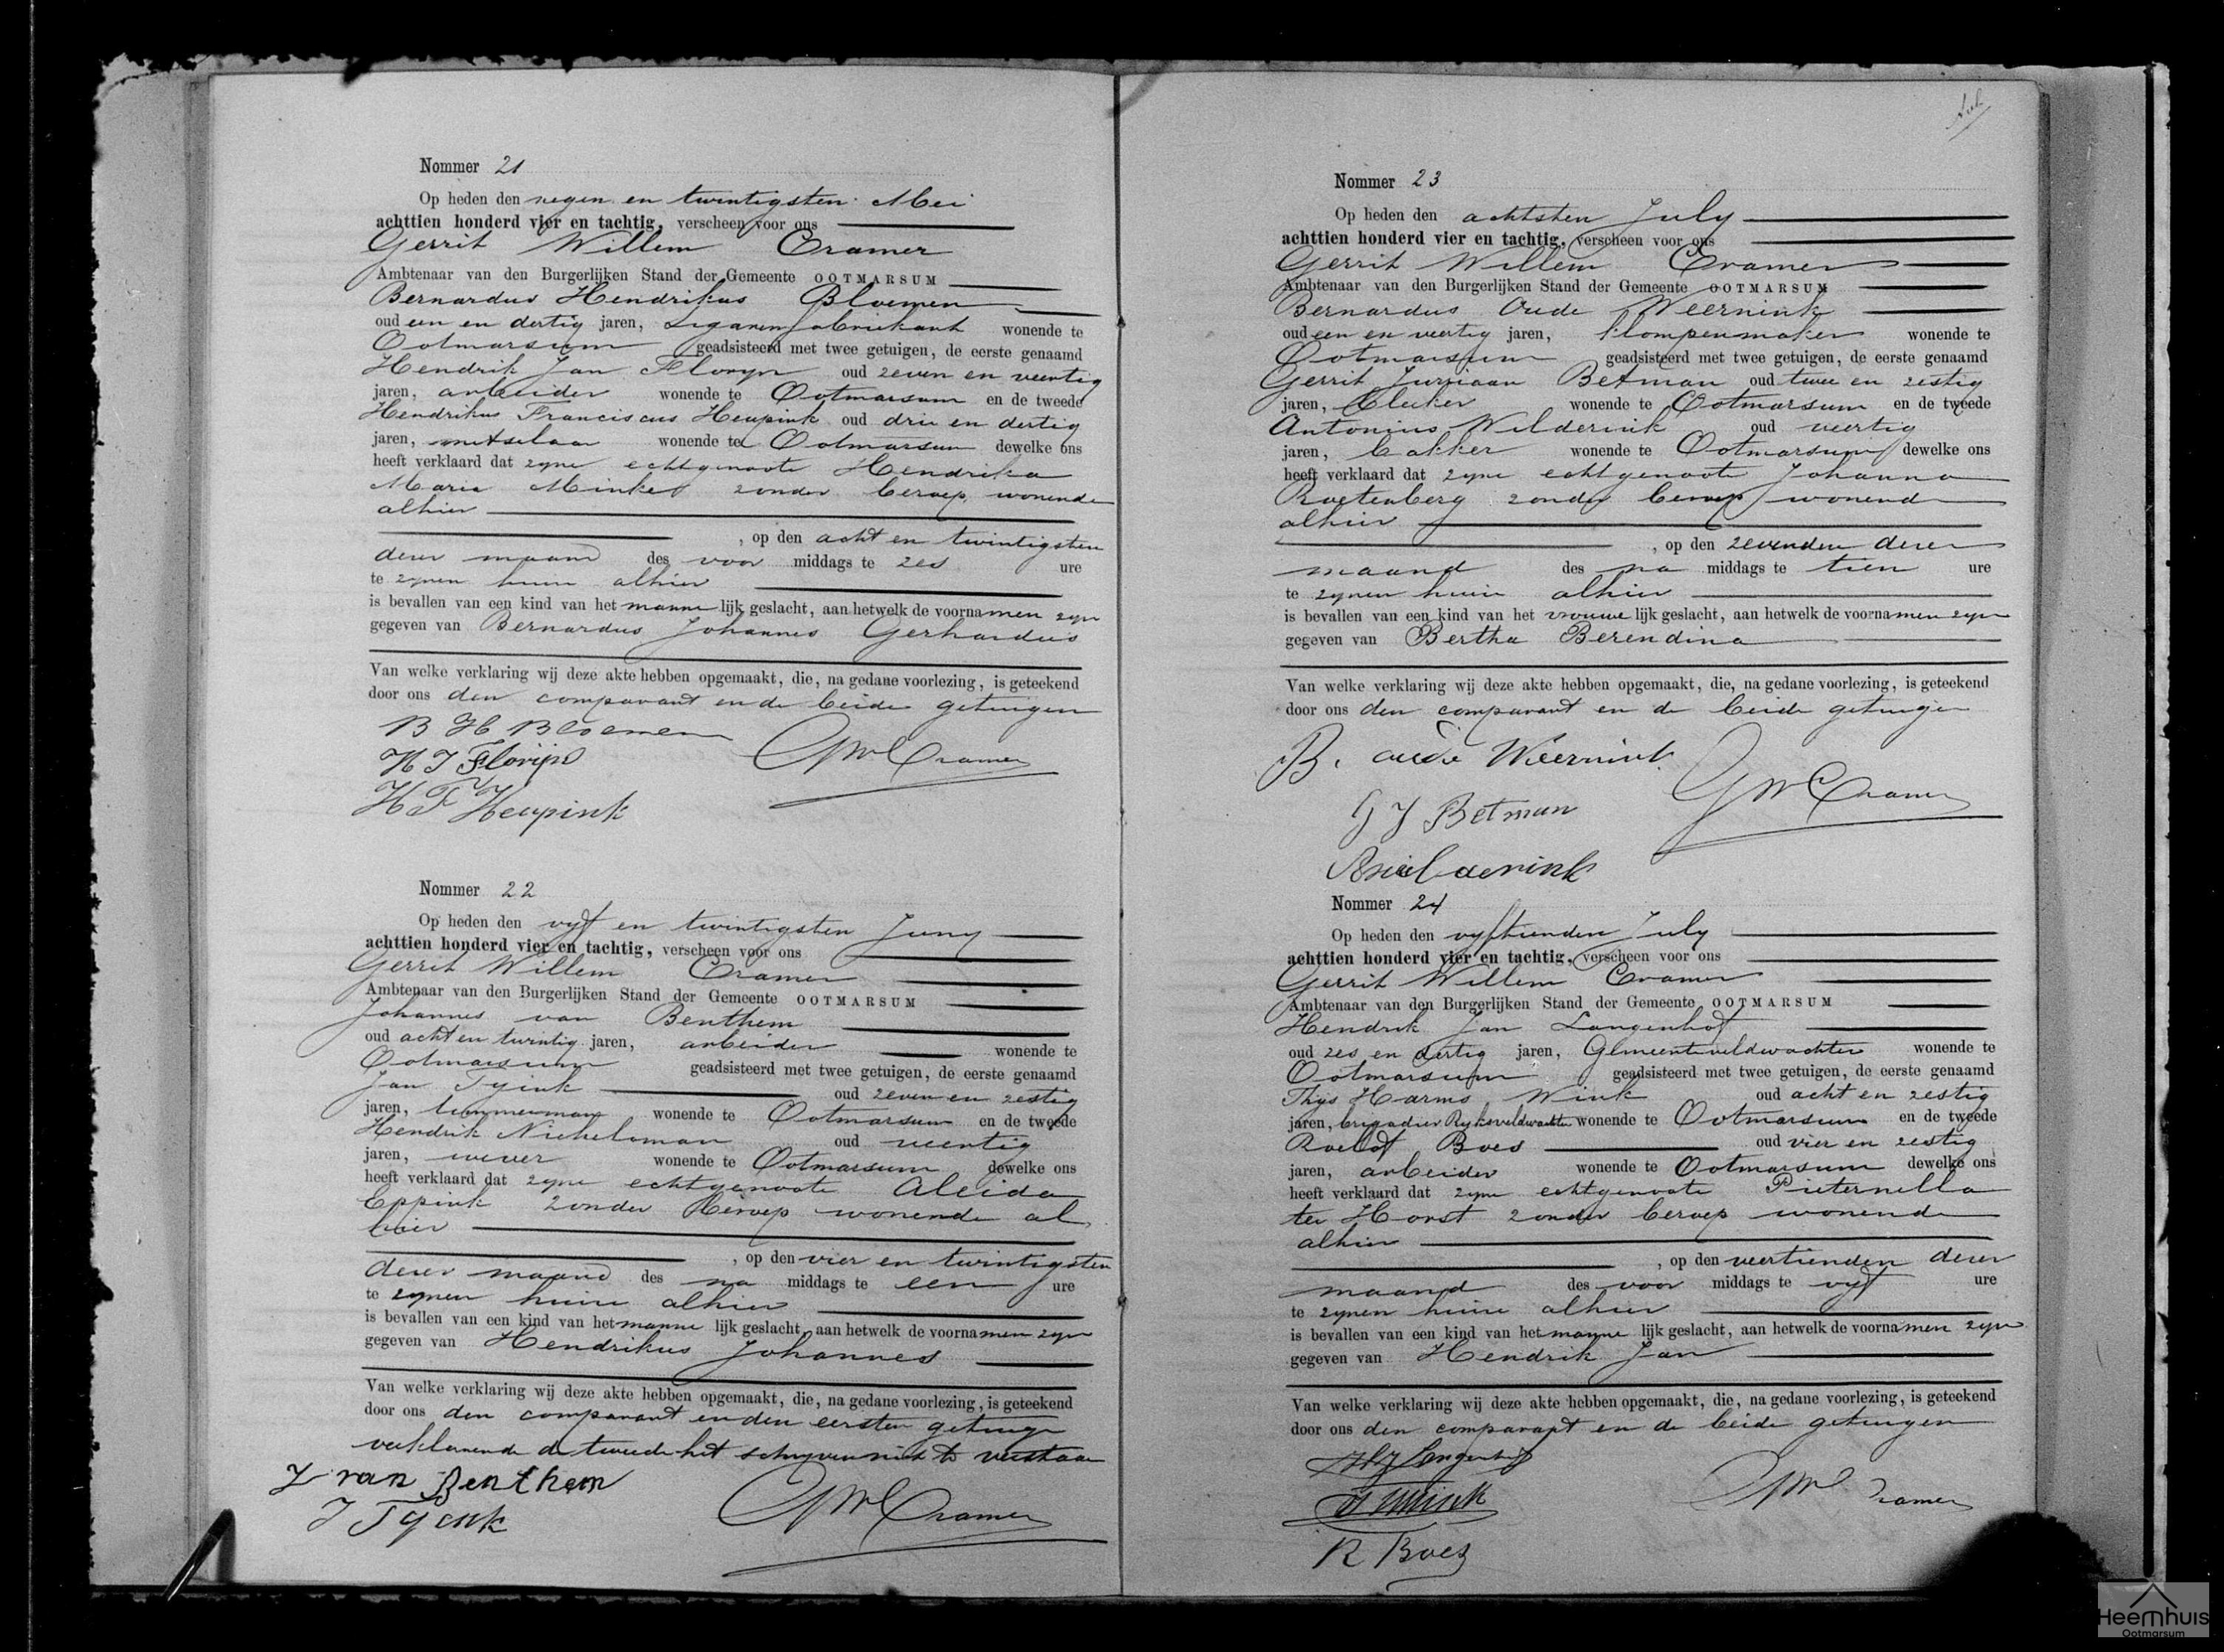 Nommer 21
Op heden den negen en twintigsten Mei
achttien honderd vier en tachtig, verscheen voor ons
Gerrit Willem Cramer
Ambtenaar van den Burgerlijken Stand der Gemeente OOTMARSUM
Bernardus Hendrikus Bloemen
oud een en dertig jaren, Sigarenfabriekant wonende te
Ootmarsum geadsisteerd met twee getuigen, de eerste genaamd
Hendrik Jan Floryn oud zeven en veertig
jaren, arbeider wonende te Ootmarsum en de tweede
Hendrikus Franciscus Heupink oud drie en dertig
jaren, metselaar wonende te Ootmarsum dewelke ons
heeft verklaard dat zyne echtgenoote Hendrika
Maria Minket zonder beroep wonende
alhier
, op den acht en twintigsten
dezer maand des voor middags te zes ure
te zynen huize alhier
is bevallen van een kind van het mannelijk geslacht, aan hetwelk de voornamen zyn
gegeven van Bernardus Johannes Gerhardus
Van welke verklaring wij deze akte hebben opgemaakt, die, na gedane voorlezing, is geteekend
door ons den comparant en de beide getuigen
B H Bloemen
H J Florijn
GWCramer
H F Heupink
Nommer 22
Op heden den vyf en twintigsten Juny
achttien honderd vier en tachtig, verscheen voor ons
Gerrit Willem Cramer
Ambtenaar van den Burgerlijken Stand der Gemeente OOTMARSUM
Johannes van Benthem
oud acht en twintig jaren, arbeider wonende te
Ootmarsum geadsisteerd met twee getuigen, de eerste genaamd
Jan Tyink oud zeven en zestig
jaren, timmerman wonende te Ootmarsum en de tweede
Hendrik Nichelsman oud veertig
jaren, wever wonende te Ootmarsum dewelke ons
heeft verklaard dat zyne echtgenoote Aleida
Eppink zonder beroep wonende al
hier
, op den vier en twintigsten
dezer maand des na middags te een ure
te zynen huize alhier
is bevallen van een kind van het mannelijk geslacht, aan hetwelk de voornamen zyn
gegeven van Hendrikus Johannes
Van welke verklaring wij deze akte hebben opgemaakt, die, na gedane voorlezing, is geteekend
door ons den comparant en den eersten getuige
verklarende de tweede het schryven niet te verstaan
J van Benthem
J Tyink
GWCramer
Nommer 23
Op heden den achtsten July
achttien honderd vier en tachtig, verscheen voor ons
Gerrit Willem Cramer
Ambtenaar van den Burgerlijken Stand der Gemeente OOTMARSUM
Bernardus Oude Weernink
oud een en veertig jaren, klompenmaker wonende te
Ootmarsum geadsisteerd met twee getuigen, de eerste genaamd
Gerrit Jurriaan Betman oud twee en zestig
jaren, bleeker wonende te Ootmarsum en de tweede
Antonius Wilderink oud veertig
jaren, bakker wonende te Ootmarsum dewelke ons
heeft verklaard dat zyne echtgenoote Johanna
Roetenberg zonder beroep wonende
alhier
, op den zevenden dezer
maand des na middags te tien ure
te zynen huize alhier
is bevallen van een kind van het vrouwelijk geslacht, aan hetwelk de voornamen zyn
gegeven van Bertha Berendina
Van welke verklaring wij deze akte hebben opgemaakt, die, na gedane voorlezing, is geteekend
door ons den comparant en de beide getuigen
B. oude Weernink
GWCramer
G J Betman
Nommer 24
Op heden den vyftienden July
achttien honderd vier en tachtig, verscheen voor ons
Gerrit Willem Cramer
Ambtenaar van den Burgerlijken Stand der Gemeente OOTMARSUM
Hendrik Jan Langenhof
oud zes en dertig jaren, Gemeenteveldwachter wonende te
Ootmarsum geadsisteerd met twee getuigen, de eerste genaamd
Thys Harms Wink oud acht en zestig
jaren, brigadier Ryksveldwachter wonende te Ootmarsum en de tweede
Roelof Boes oud vier en zestig
jaren, arbeider wonende te Ootmarsum dewelke ons
heeft verklaard dat zyne echtgenoote Pieternella
ter Horst zonder beroep wonende
alhier
, op den veertienden dezer
maand des voor middags te vyf ure
te zynen huize alhier
is bevallen van een kind van het mannelijk geslacht, aan hetwelk de voornamen zyn
gegeven van Hendrik Jan
Van welke verklaring wij deze akte hebben opgemaakt, die, na gedane voorlezing, is geteekend
door ons den comparant en de beide getuigen
HJLangenhof
GWCramer
R Boes
Heemhuis
Ootmarsum